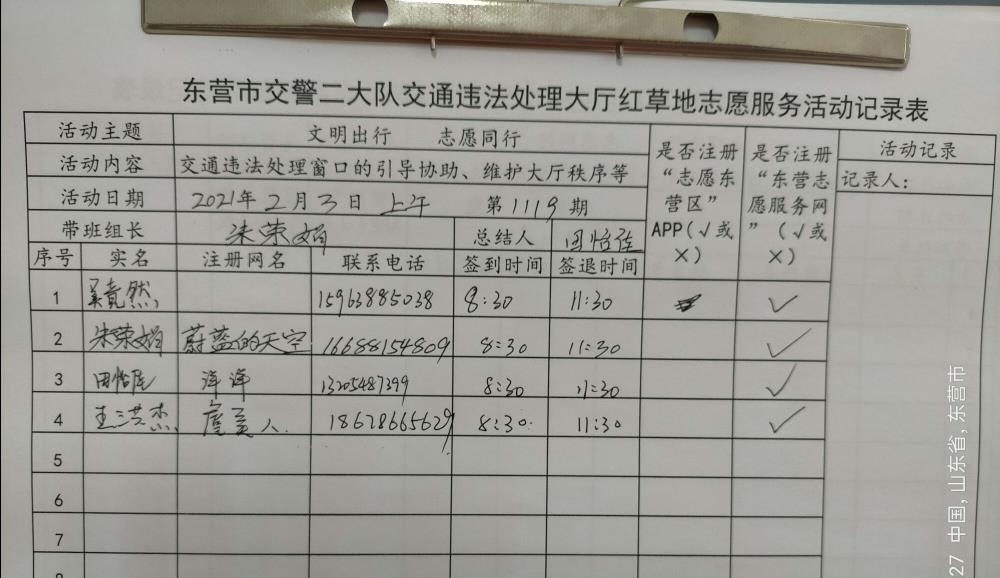 东营市交警二大队交通违法处理大厅红草地志愿服务活动记录表
活动主题 文明出行 志愿同行 是否注册“志愿东营区”APP(√或×) 是否注册“东营志愿服务网”(√或×) 活动记录
活动内容 交通违法处理窗口的引导协助、维护大厅秩序等 记录人：
活动日期 2021年2月3日 上午 第1119期
带班组长 朱荣娟 总结人 田怡佳
序号 实名 注册网名 联系电话 签到时间 签退时间
1 吴竟然 15963885038 8:30 11:30 √
2 朱荣娟 蔚蓝的天空 16688154809 8:30 11:30 √
3 田怡佳 洋洋 13205487399 8:30 11:30 √
4 王洪杰 人. 18678665629 8:30 11:30 √
5
6
7
8
27 中国,山东省,东营市